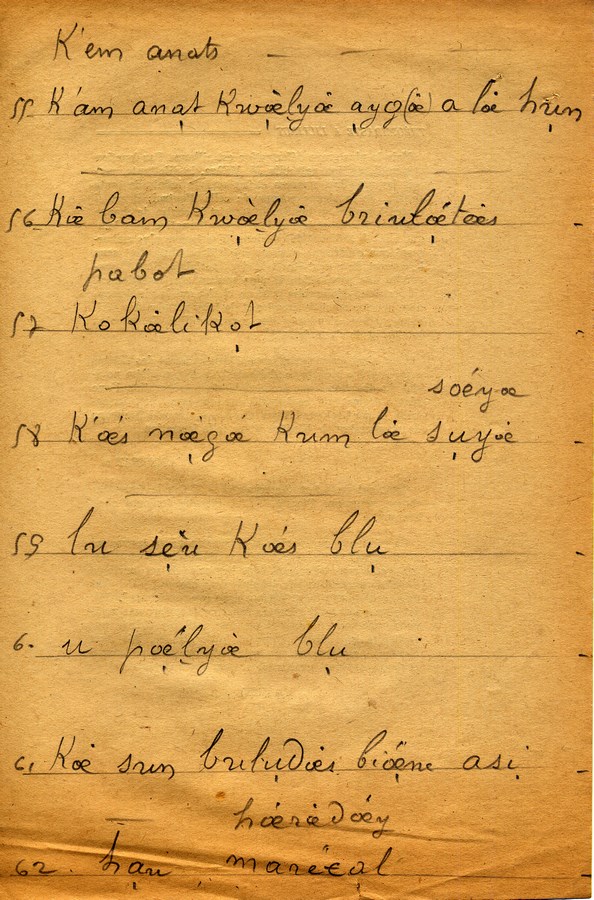 K'em anats
55 K'am anạt Kwœ̣̀lyœ ayg(œ) a lœ hụn
56 Kœ bam Kwœ̣̀lyœ briulœ́tœs
pabot
57 Kokœlikọt
soéyœ
58 K'œ́s nœ̀gœ́ Kum lœ sụyœ
59 lu sẹ̀u Kœ́s blụ
60 u pœ̣́lyœ blụ
61 Kœ sun brulụdœs biœ̈nu asị
hœ́rœ̀dœ́y
62 hạu marëɛạl